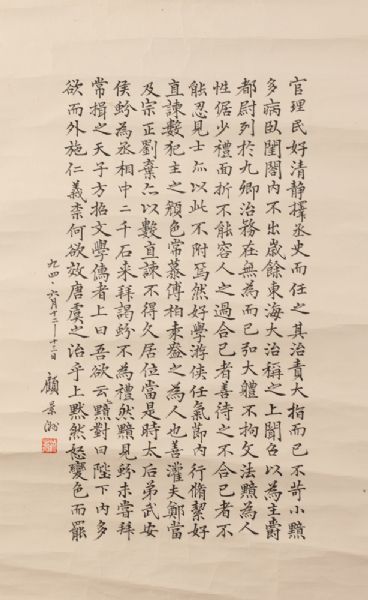 官理民好清静擇丞史而任之其治責大指而已不苛小黯
多病臥閨閤内不出歳餘東海大治稱之上聞召以為主爵
都尉列於九卿治務在無為而已弘大體不拘文法黯為人
性倨少禮面折不能容人之過合己者善待之不合己者不
能忍見士亦以此不附焉然好學游俠任氣節内行脩絜好
直諫數犯主之顏色常慕傅柏袁盎之為人也善灌夫鄭當
及宗正劉棄亦以數直諫不得久居位當是時太后弟武安
侯蚡為丞相中二千石来拜謁蚡不為禮然黯見蚡未嘗拜
常揖之天子方招文學儒者上曰吾欲云黯對曰陛下内多
欲而外施仁義柰何欲效唐虞之治乎上默然怒變色而罷
九四、六月十二—十三日 顧景洲